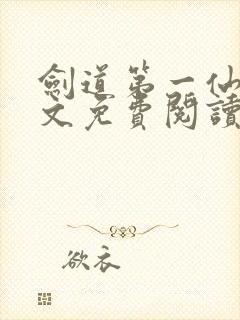 劍道第一仙
文免費閱讀
欲衣